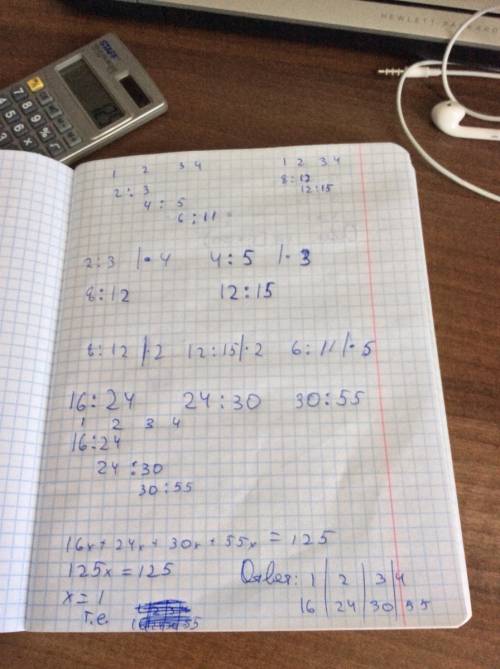 HEWLETT-PACKARD
STAFF
1 2 3 4
2 : 3
4 : 5
6 : 11
1 2 3 4
8 : 12
12 : 15
2 : 3 | · 4 4 : 5 | · 3
8 : 12 12 : 15
8 : 12 | · 2 12 : 15 | · 2 6 : 11 | · 5
16 : 24 24 : 30 30 : 55
1 2 3 4
16 : 24
24 : 30
30 : 55
16x + 24x + 30x + 55x = 125
125x = 125
x = 1
т.е.
Ответ: 1 | 2 | 3 | 4
16 | 24 | 30 | 55